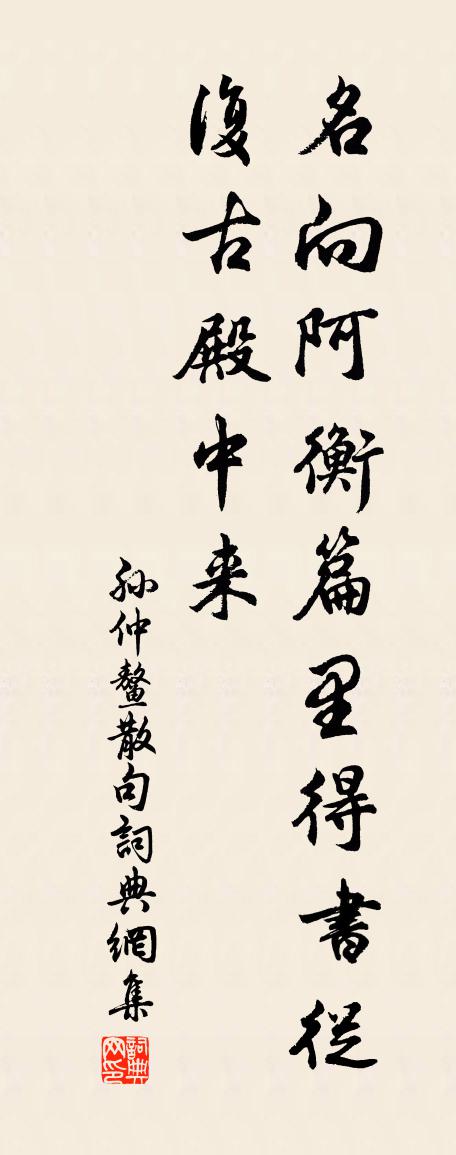 名向阿衡篇里得書從
復古殿中来
孙仲鳌散句詞典網集
詞典网印